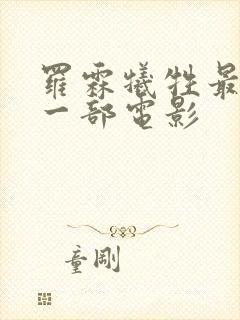 羅霖犧牲最
一部電影
童剛